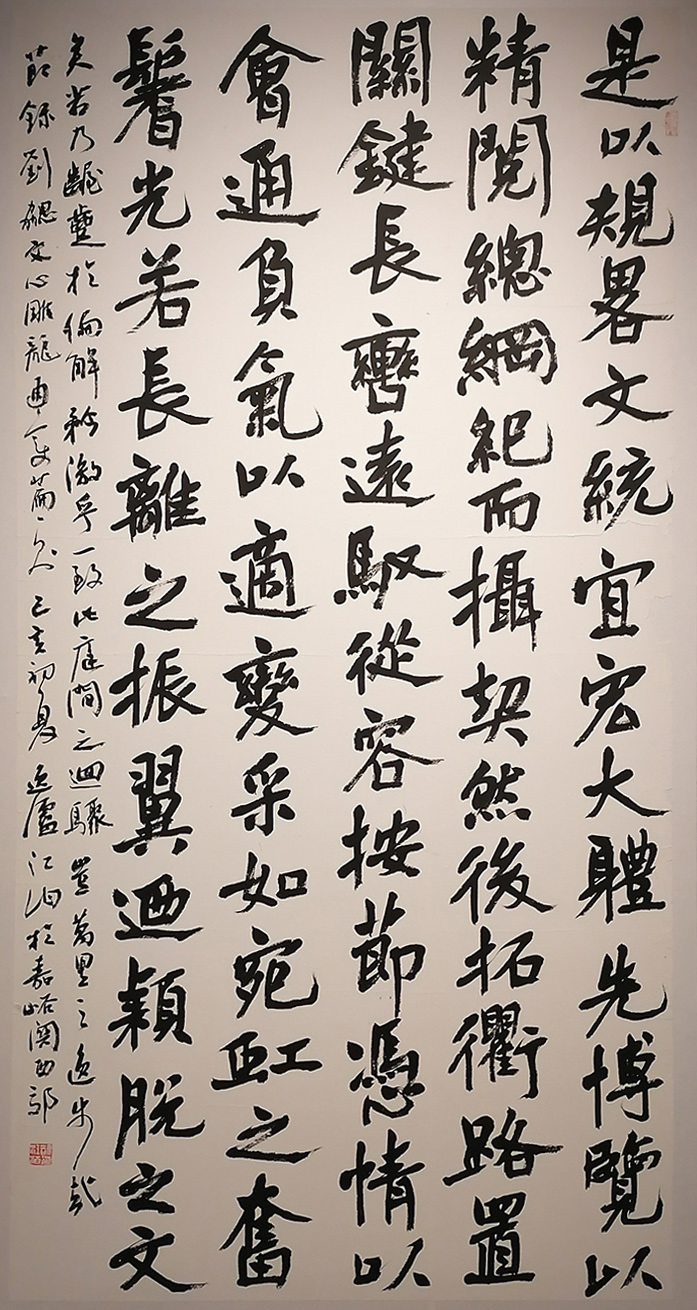 是以規畧文統宜宏大體先博覽以
精閱總綱紀而攝契然後拓衢路置
關鍵長轡遠馭從容按節憑情以
會通負氣以適變采如宛虹之奮
鬐光若長離之振翼迺穎脫之文
矣若乃齷齪於偏解矜激乎一致此庭間之迴驟豈萬里之逸步哉
節錄劉勰文心雕龍通變篇己亥初夏廬江泊於嘉峪關西部